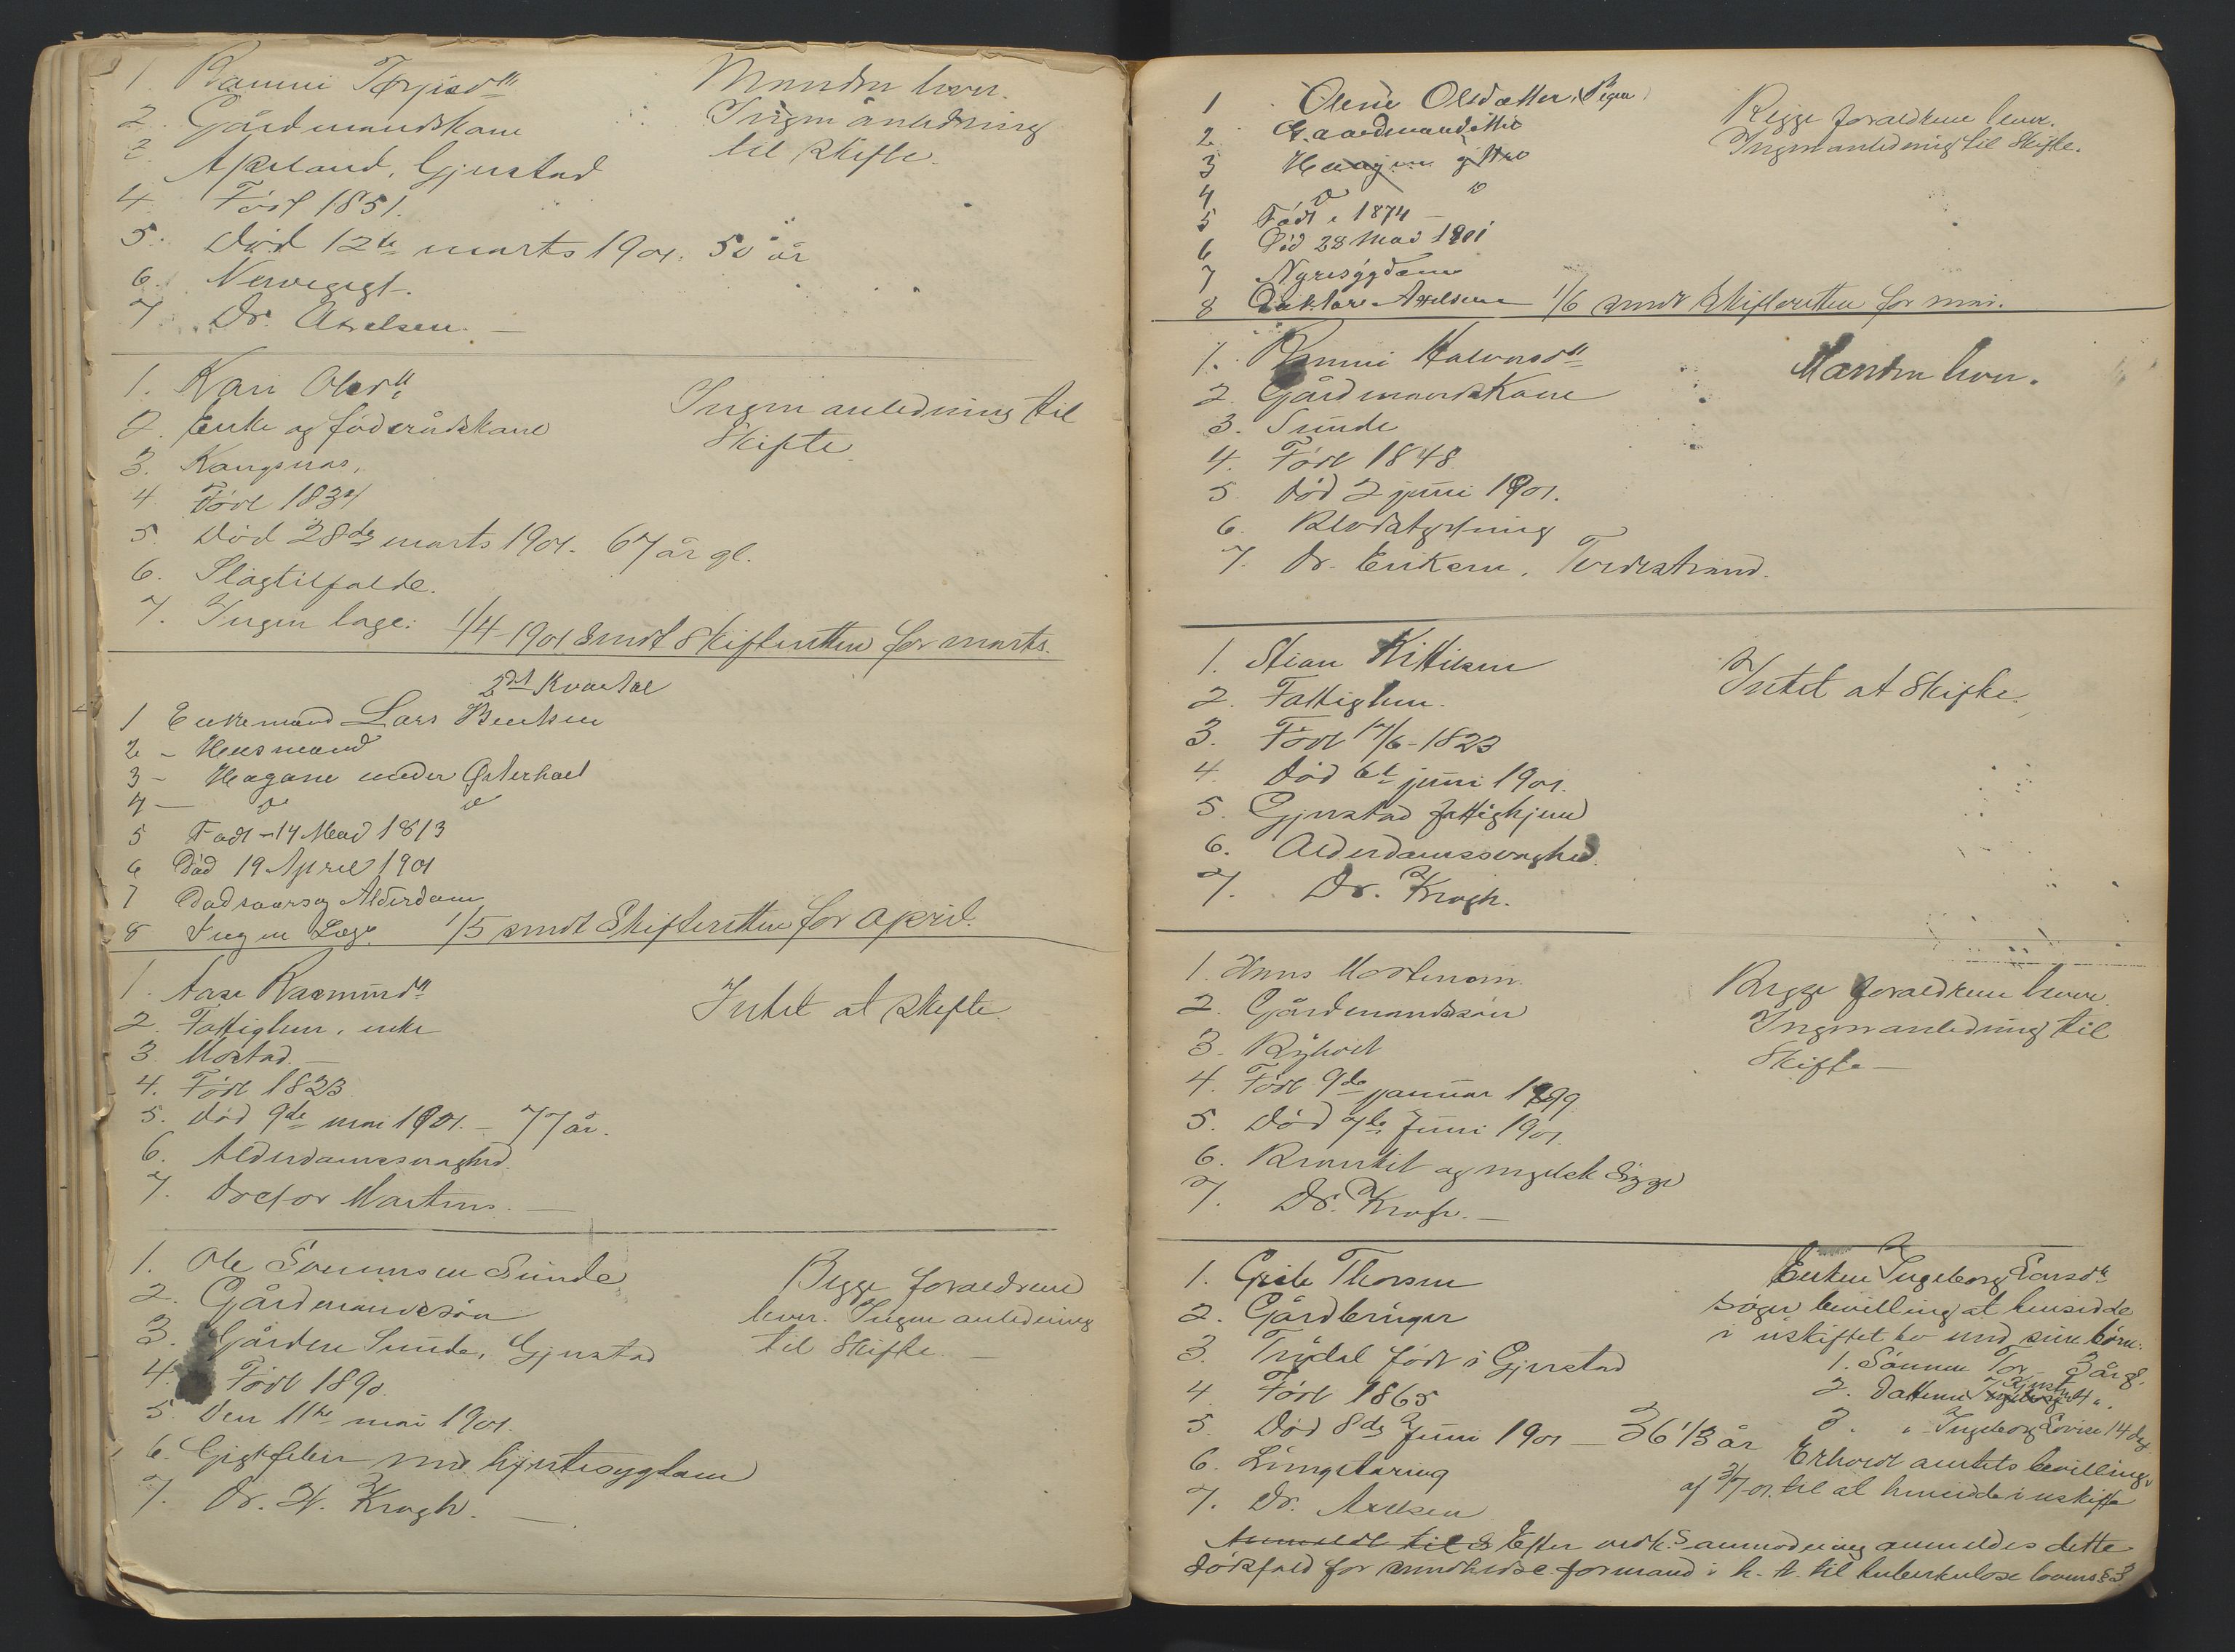 1. Torjisdtt
2. Gårdmandskone
3. Apeland, Gjerstad
4. Født 1851.
5. Død 12te marts 1901. 50 år
6. Nervegigt.
7. Dr. Axelsen. —
Manden lever.
Ingen anledning
til skifte.
1. Kari Olsdtt
2. Enke og føderådskone
3. Kangsnæs,
4. Født 1834
5. Død 28de marts 1901. 67 år gl.
6. Slagtilfælde.
7. Ingen læge: 1/4 1901 sendt Skifteretten for marts.
Ingen anledning til
Skifte
2det Kvartal
1 Enkemand Lars Bentsen
2 - Husmand
3 - Hagane under Østerholt
4 —
5 Født - 14 Mai 1813
6 Død 19 April 1901
7 Alderdom
8 Ingen Læge. 1/5 sendt Skifteretten for april.
1. Aase Rasmusdtt
2. Fattiglem, enke
3. Mostad. —
4. Født 1823
5. Død 9de mai 1901. — 77 år.
6. Alderdomssvaghed.
7. Doctor Martens. —
Intet at skifte
1. Ole Sunde
2. Gårdmandssøn
3. Gården Sunde, Gjerstad
4. Født 1890.
5. Den 11te mai 1901.
6. Gigtfeber med hjertesygdom
7. Dr. H. Krogh. —
Begge forældrene
lever. Ingen anledning
til skifte —
1 Olene Olsdatter, (Pige)
2 Gaardmandsdatter
3
4
5 Født i 1874 —
6 Død 28 Mai 1901
7 Nyresygdom
8 Doktor Axelsen 1/6 sendt Skifteretten for mai.
Begge forældrene lever.
Ingen anledning til skifte.
1. Halvorsdtt
2. Gårdmandskone
3. Sunde
4. Født 1848
5. Død 2 juni 1901.
6. Blodstyrtning
7. Dr. Eriksen, Tvedestrand.
Manden lever.
1. Stian Kittilsen
2. Fattiglem.
3. Født 17/6 - 1823
4. Død 6te juni 1901.
5. Gjerstad fattighjem
6. Alderdomssvaghed.
7. Dr. Krogh.
Intet at skifte.
1. Hans Mortensen.
2. Gårdmandssøn
3. Ryholt
4. Født 9de januar 1899
5. Død 7de Juni 1901.
6. Bronkit og engelsk Syge
7. Dr. Krogh. —
Begge forældrene lever.
Ingen anledning til
Skifte —
1. Thorsen
2. Gårdbruger
3. Trydal født i Gjerstad
4. Født 1865
5. Død 8de Juni 1901 — 36 1/3 år
6. Lungetæring
7. Dr. Axelsen
Enken Ingeborg Larsdtt
søger bevilling at hensidde
i uskiftet bo med sine børn:
1. Sønnen Tor 3 år gl.
2. Datteren
3. " Ingeborg Lovise 14 dage
Erholdt amtets bevilling
af 3/7-01. til at hensidde i uskifte
Anmeldt til Efter anmodning anmeldes dette
dødsfald for sundhedsc. formand i h. t. til tuberkulose lovens § 3